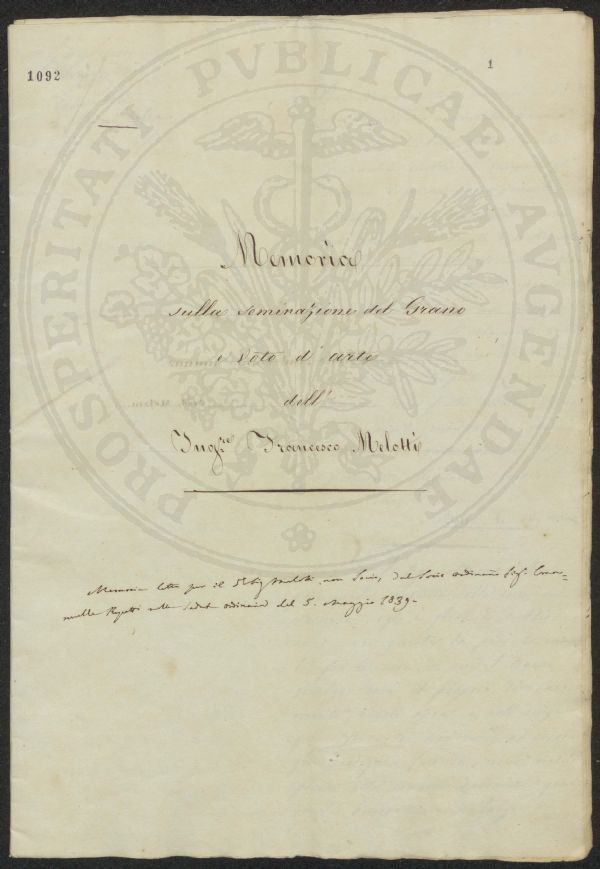 1092
1
PROSPERITATI PVBLICAE AVGENDAE
Memoria
sulla seminazione del Grano
e voto d'arte
dell'
Ing.re Francesco Melotti
Memoria letta per il Melotti, non Socio, dal Socio ordinario Sig.
alla seduta ordinaria del 5. Maggio 1839.